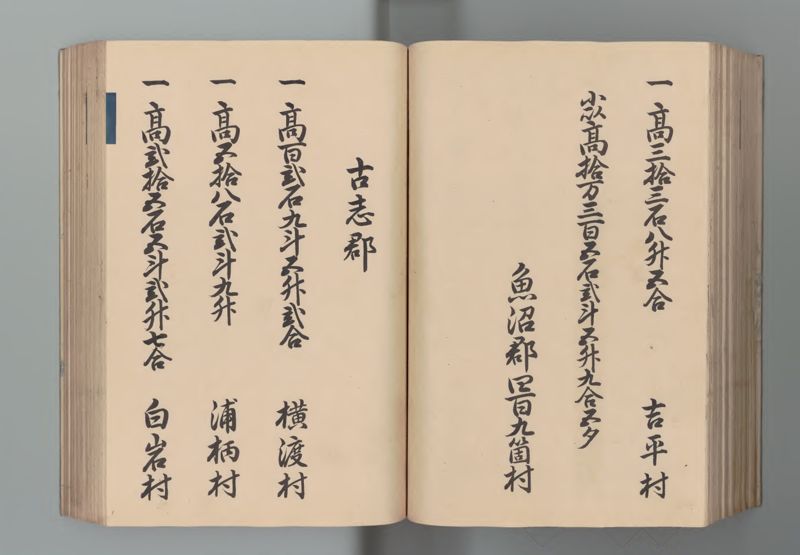 一 高三拾三石八升五合 吉平村
小以高拾万三百五石弐斗五升九合五夕
魚沼郡四百九箇村
古志郡
一 高百弐石九斗五升弐合 横渡村
一 高五拾八石弐斗九升 浦柄村
一 高弐拾五石五斗弐升七合 白岩村